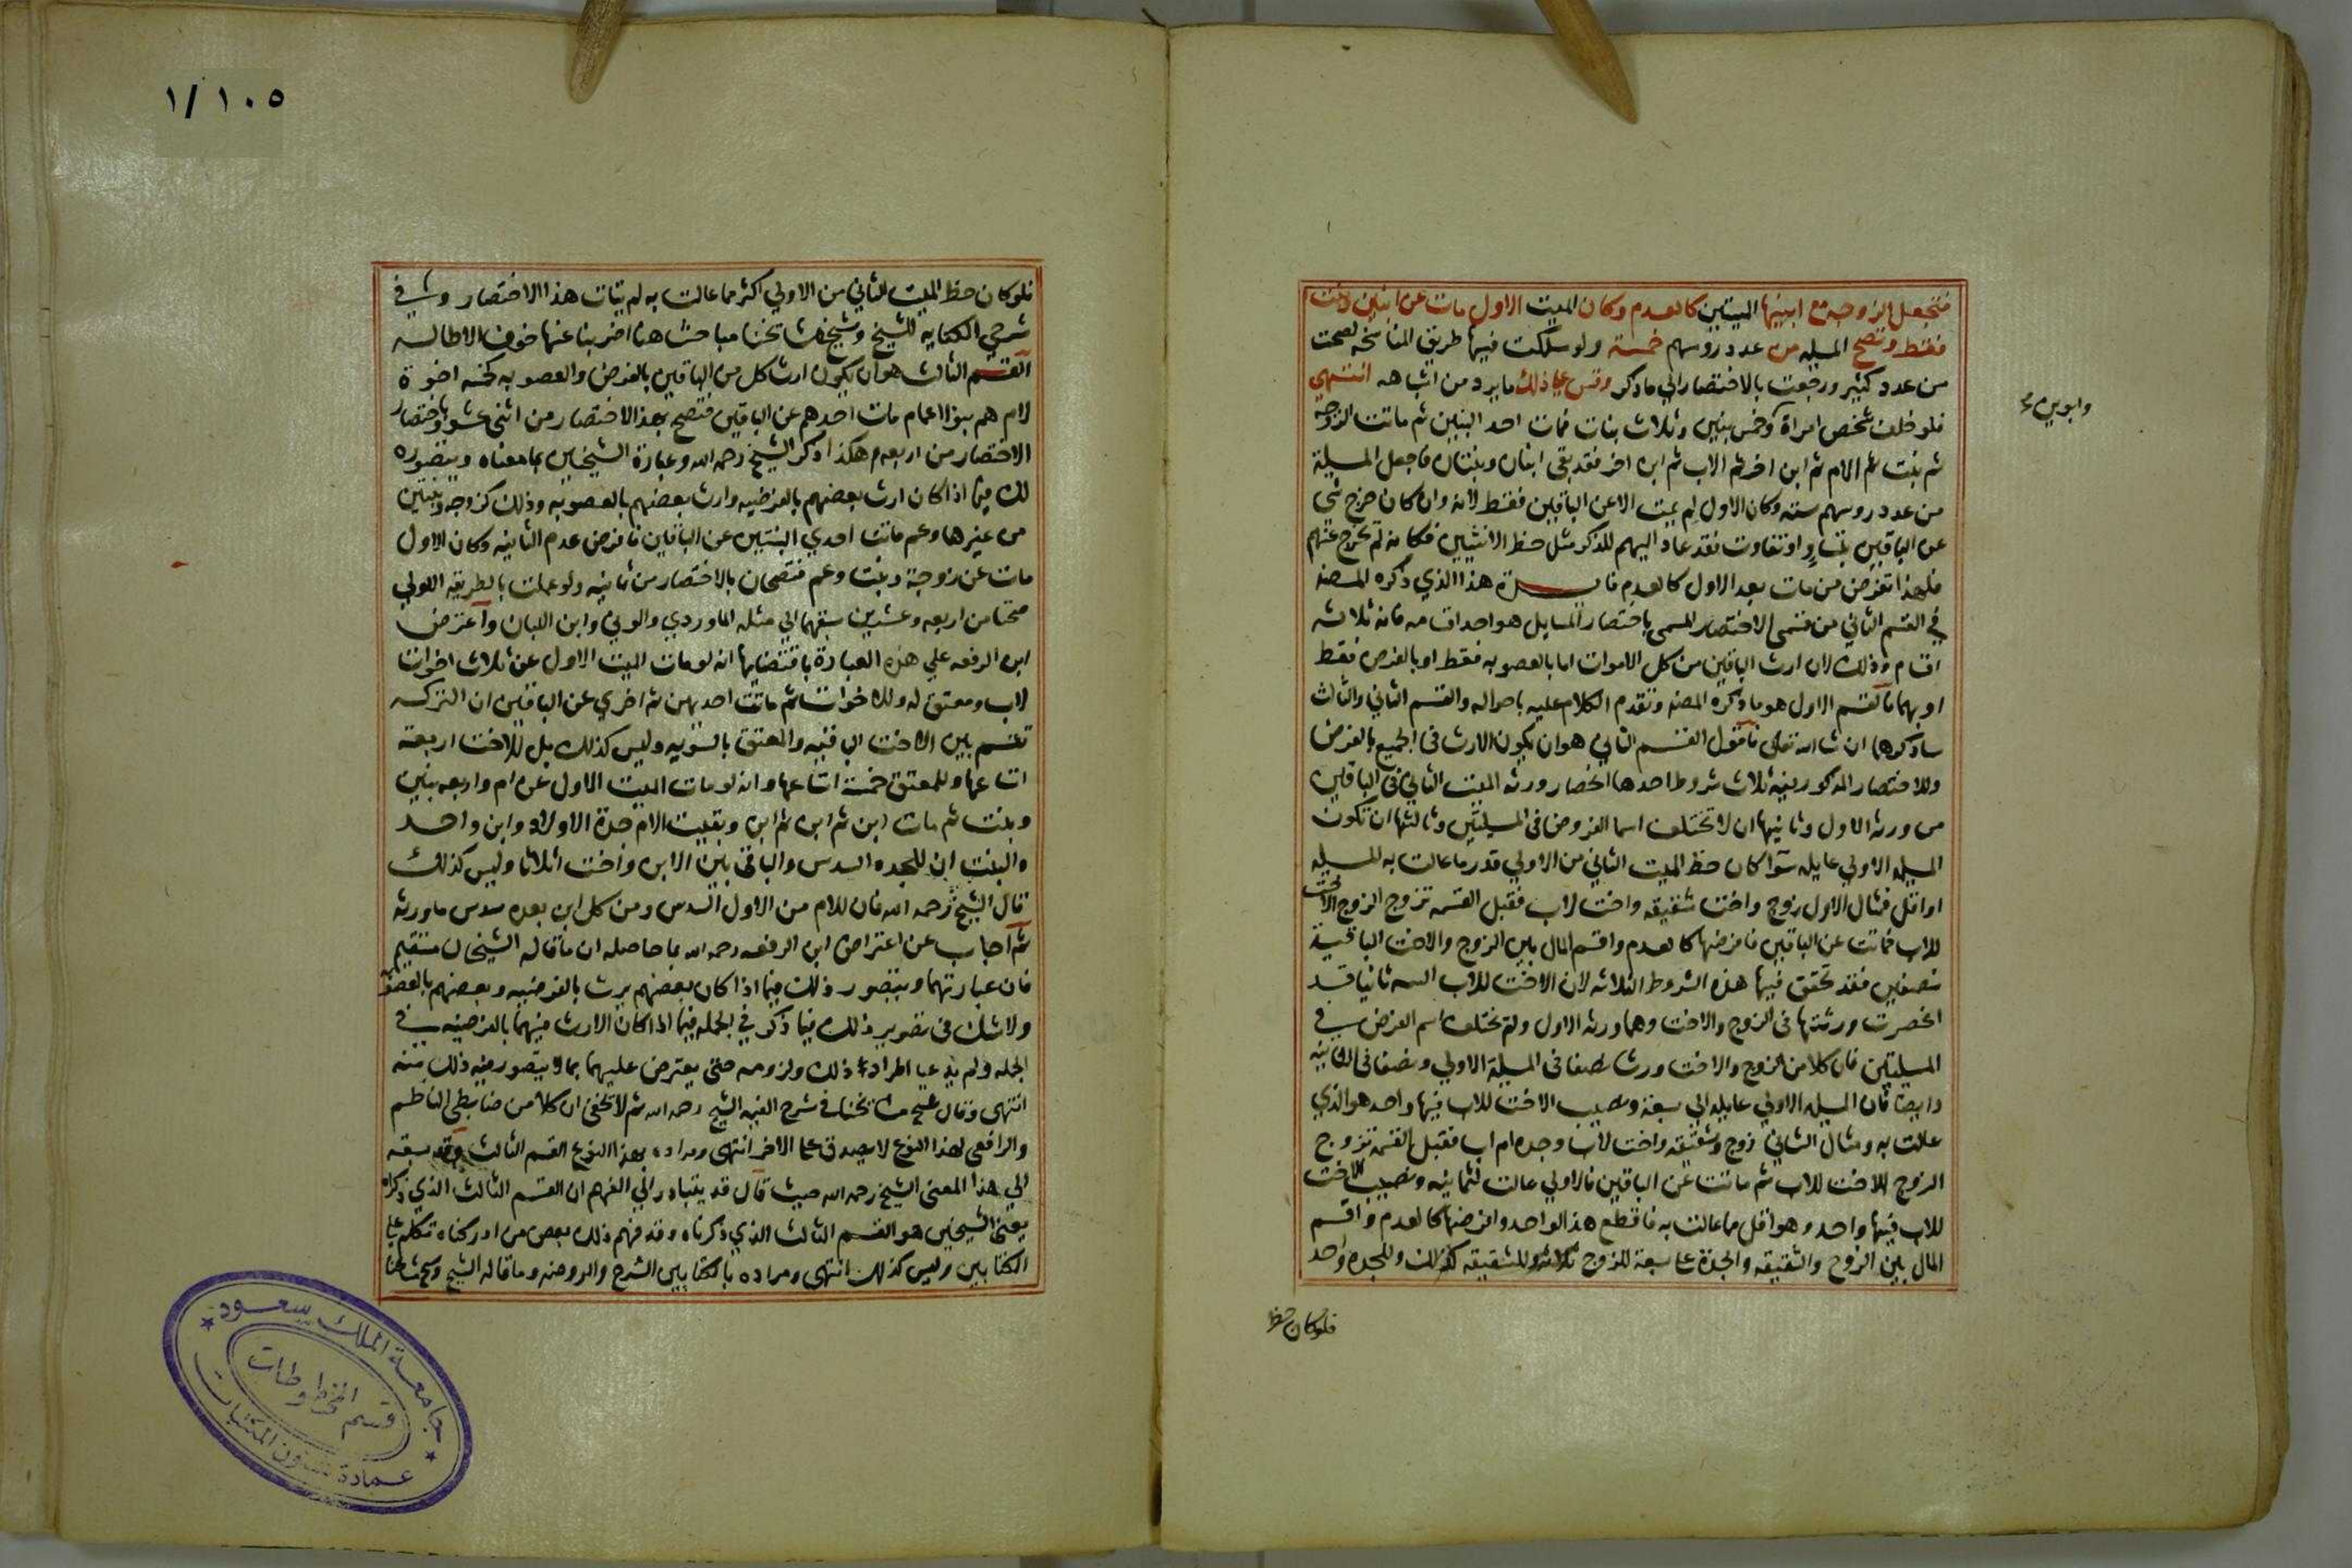 فتجعل الزوجة مع ابنيها الميتين كالعدم وكان الميت الاول مات عن ابنين وبنت
فقط وتصح المسيله من عدد روسهم خمسة ولو سلكت فيها طريق المناسخه لصحت
من عدد كثير ورجعت بالاختصار الي ما ذكر وقس علي ذلك ما يرد من اشباهه انتهي
فلو خلف شخص امراة وخمس بنين وثلاث بنات فمات احد البنين ثم ماتت الزوجه
وابوين
ثم بنت ثم الام ثم ابن اخر ثم الاب ثم ابن اخر فقد بقي ابنان وبنتان فاجعل المسيلة
من عدد روسهم سته وكان الاول لم يمت الا عن الباقين فقط لانه وان كان خرج شي
عن الباقين بتساو او تفاوت فقد عاد اليهم للذكر مثل حظ الانثيين فكانه لم يخرج عنهم
فلهذا تفرض من مات بعد الاول كالعدم فايدة هذا الذي ذكره المصنه
في القسم الثاني من قسمي الاختصار المسمي باختصار المسايل هو احد اقسامه فانه ثلاثه
اقسام وذلك لان ارث الباقين من كل الاموات اما بالعصوبه فقط او بالفرض فقط
او بهما فالقسم الاول هو ما ذكره المصنه وتقدم الكلام عليه باحواله والقسم الثاني والثالث
ساذكرهما ان شا الله تعالي فاقول القسم الثاني هو ان يكون الارث في الجميع بالفرض
وللاختصار المذكور فيه ثلاث شروط احدها انحصار ورثه الميت الثاني في الباقين
من ورثه الاول وثانيها ان لا تختلف اسما الفروض في المسيلتين وثالثها ان تكون
المسيله الاولي عايله سوآ كان حظ الميت الثاني من الاولي قدر ما عالت به المسيله
او اقل فمثال الاول زوج واخت شقيقه واخت لاب فقبل القسمه تزوج الزوج الاخت
للاب فماتت عن الباقين فافرضها كالعدم واقسم المال بين الزوج والاخت الباقية
نصفين فقد تحقق فيها هذه الشروط الثلاثه لان الاخت للاب الميته ثانيا قد
انحصرت ورثتها في الزوج والاخت وهما ورثه الاول ولم يختلف اسم الفرض في
المسيلتين فان كلا من الزوج والاخت ورث نصفا في المسيلة الاولي ونصفا في الثانيه
وايضا فان المسيله الاولي عايله الي سبعة ونصيب الاخت للاب فيها واحد هو الذي
عالت به ومثال الثاني زوج وشقيقه واخت لاب وجده ام اب فقبل القسمه تزوج
الزوج الاخت للاب ثم ماتت عن الباقين فالاولي عالت لثمانيه ونصيب الاخت
للاب فيها واحد وهو اقل مما عالت به فاقطع هذا الواحد وافرضها كالعدم واقسم
المال بين الزوج والشقيقه والجدة علي سبعة للزوج ثلاثه وللشقيقه كذلك وللجده واحد
فلو كان حظ
١٠٥/١
فلو كان حظ الميت الثاني من الاولي اكثر مما عالت به لم يتات هذا الاختصار وفي
شرحي الكفايه للشيخ وشيخ مشايخنا مباحث هنا اضربنا عنها خوف الاطاله
القسم الثالث هو ان يكون ارث كل من الباقين بالفرض والعصوبه كخمسه اخوة
لام هم بنوا اعمام مات احدهم عن الباقين فتصح بعد الاختصار من اثني عشر وباختصار
الاختصار من اربعه هكذا ذكر الشيخ رحمه الله وعبارة الشيخين بما معناه ويتصوره
ذلك فيما اذا كان ارث بعضهم بالفرضيه وارث بعضهم بالعصوبه وذلك كزوجه وبنتين
من غيرها وعم ماتت احدي البنتين عن الباقين فافرض عدم الثانيه وكان الاول
مات عن زوجة وبنت وعم فتصحان بالاختصار من ثمانيه ولو عملت بالطريقه الاولي
صحتا من اربعه وعشرين سبقهما الي مثله الماوردي والوني وابن اللبان وآعترض
ابن الرفعه علي هذه العبارة باقتضايها انه لو مات الميت الاول عن ثلاث اخوات
لاب ومعتق له وللاخوات ثم ماتت احديهن ثم اخري عن الباقين ان التركه
تقسم بين الاخت الباقيه والمعتق بالسويه وليس كذلك بل للاخت اربعة
اتساعها وللمعتق خمسة اتساعها وانه لو مات الميت الاول عن ام واربعه بنين
وبنت ثم مات ابن ثم ابن ثم ابن وبقيت الام جدة الاولاد وابن واحد
والبنت ان للجده السدس والباقي بين الابن واخت اثلاثا وليس كذلك
قال الشيخ رحمه الله فان للام من الاول السدس ومن كل ابن بعده سدس ما ورثه
ثم اجاب عن اعتراض ابن الرفعه رحمه الله بما حاصله ان ما قاله الشيخان مستقيم
فان عبارتهما ويتصور ذلك فيما اذا كان بعضهم يرث بالفرضيه وبعضهم بالعصوبه
ولا شك في تصوير ذلك فيما ذكر في الجمله فيما اذا كان الارث فيهما بالفرضيه في
الجمله ولم يدعيا اطراده ذلك ولزومه حتي يعترض عليهما بما لا يتصور فيه ذلك منه
انتهي وقال شيخ مشايخنا في شرح الفيه الشيخ رحمه الله ثم لا يخفي ان كلا من ضابطي الناظم
والرافعي لهذا النوع لا يصدق علي الاخر انتهي ومراده بهذا النوع القسم الثالث وقد سبقه
الي هذا المعني الشيخ رحمه الله حيث قال قد يتبادر الي الفهم ان القسم الثالث الذي ذكراه
يعني الشيخين هو القسم الثالث الذي ذكرناه وقد فهم ذلك بعض من ادركناه تكلم علي
الكتابين وليس كذلك انتهي ومراده بالكتابين الشرح والروضه وما قاله الشيخ وشيخ مشايخنا
جامعة الملك سعود
قسم المخطوطات
عمادة شؤون المكتبات